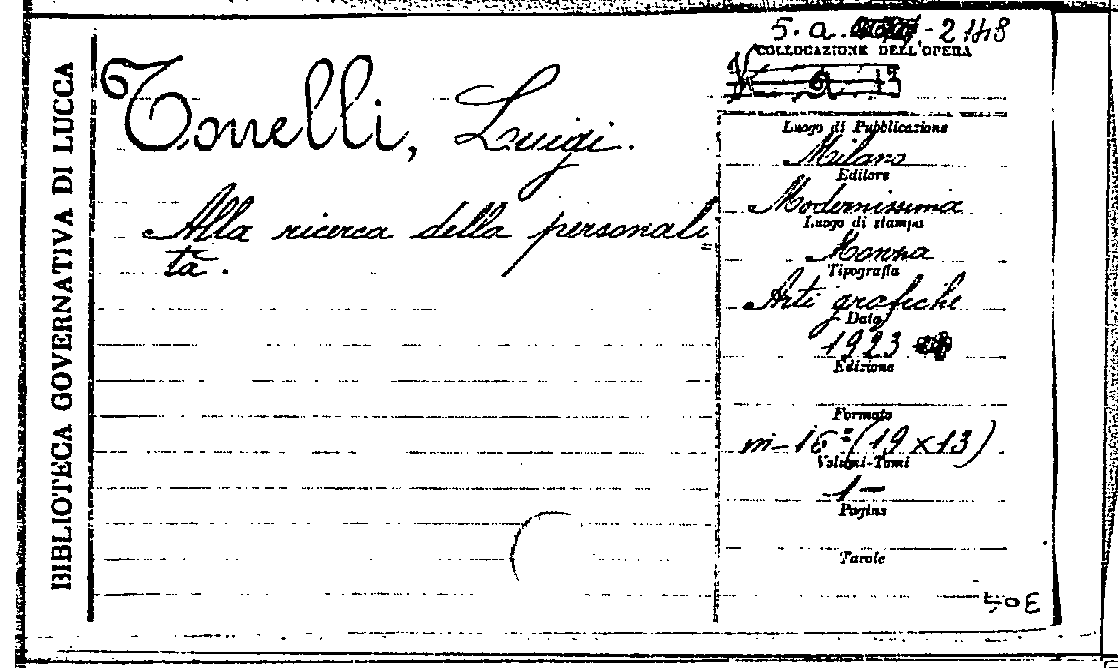 BIBLIOTECA GOVERNATIVA DI LUCCA
Tonelli, Luigi.
Alla ricerca della personali=
tà.
5. a. - 2148
COLLOCAZIONE DELL'OPERA
Luogo di Pubblicazione
Milano
Editore
Modernissima
Luogo di stampa
Monza
Tipografia
Arti grafiche
Data
1923
Edizione
Formato
in-16º (19 x 13)
Volumi-Tomi
1-
Pagine
Tavole